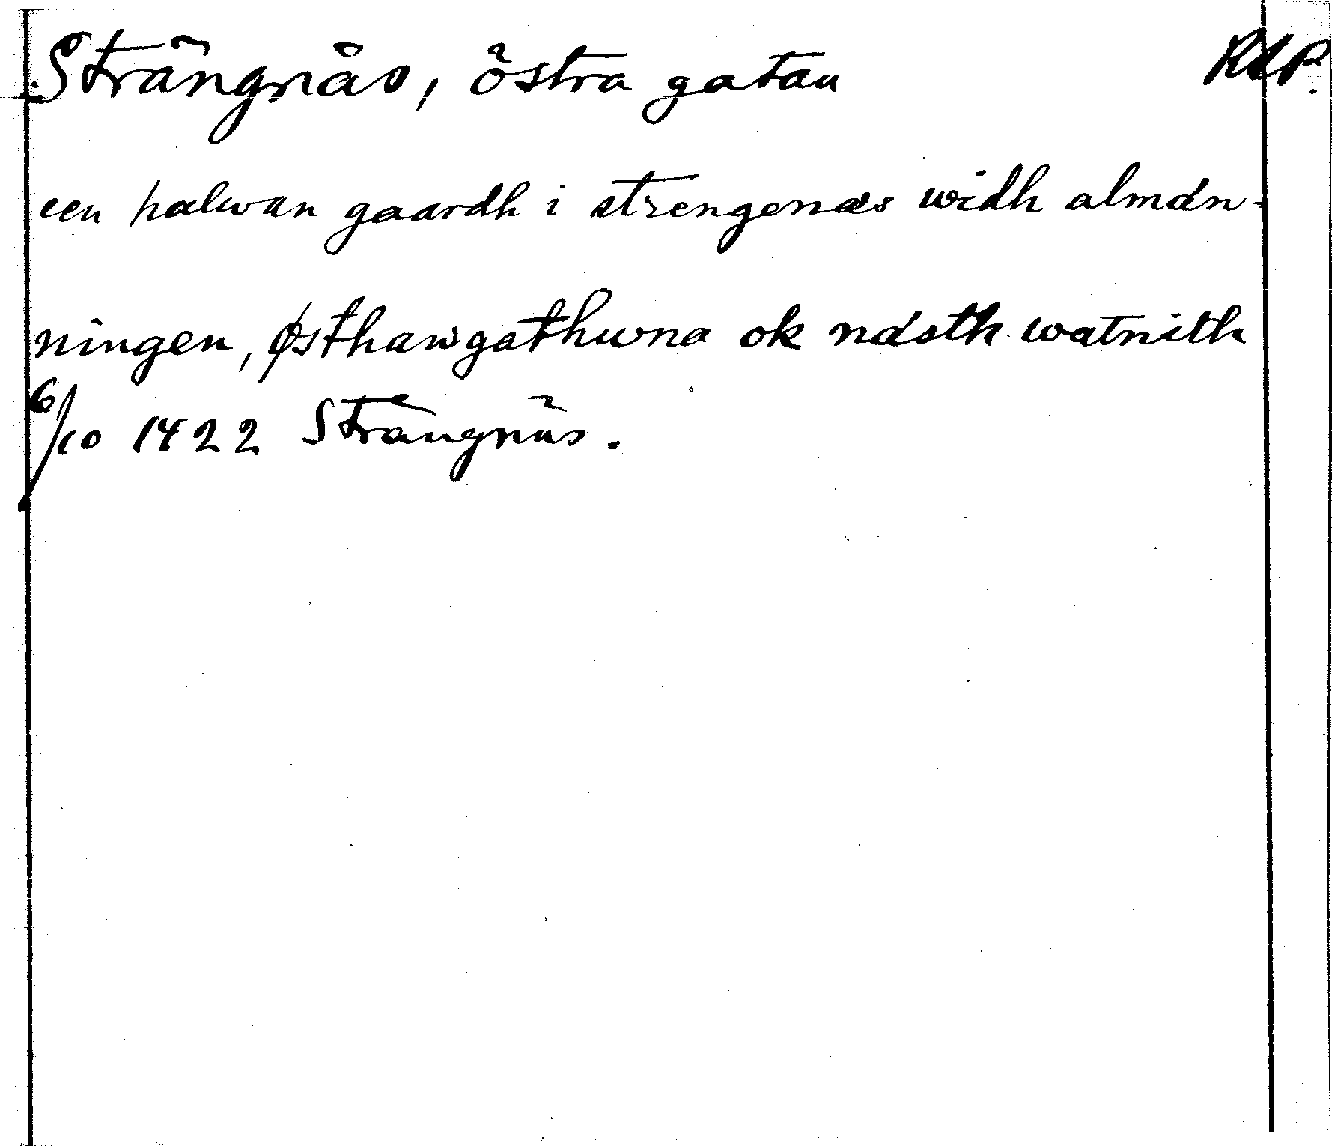 Strängnäs, östra gatan RAP.
een halwan gaardh i strengenæs widh almán-
ningen, østhawgathwna ok násth watnith
6/10 1422 Strängnäs.